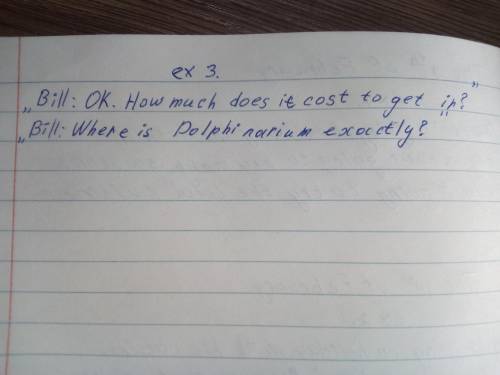 ex 3.
„Bill: OK. How much does it cost to get in?”
„Bill: Where is Dolphinarium exactly?”